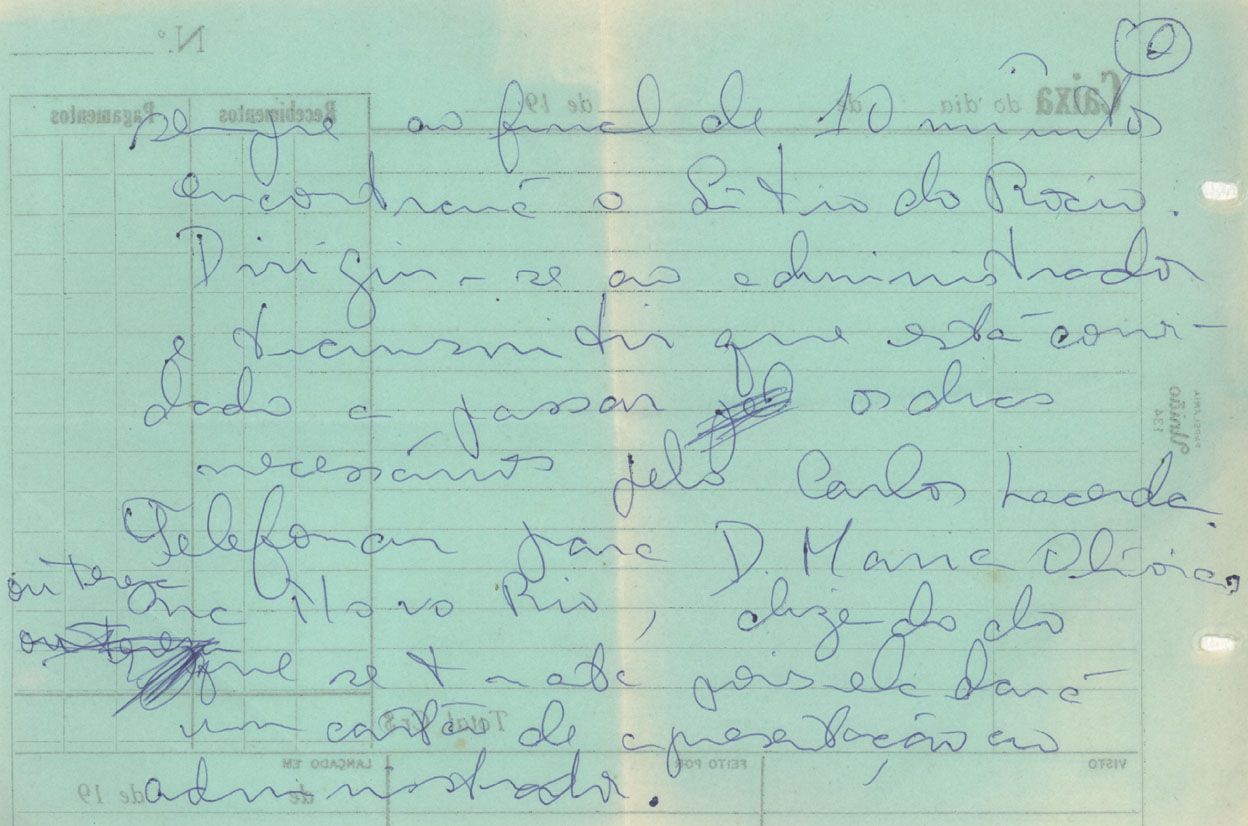 2
sempre ao final de 10 minutos
encontrará o Sítio do Rocio.
Dirigir-se ao administrador
e transmitir que está convi-
dado a passar os dias
necessários pelo Carlos Lacerda.
Telefonar para D. Maria Olívia,
ou terça
na Novo Rio, dizendo do
ou terça
que se trata pois ela dará
um cartão de apresentação ao
administrador.
Nº
Caixa do dia de de 19
Recebimentos Pagamentos
União
134
Total Cr$
VISTO FEITO POR LANÇADO EM
de de 19